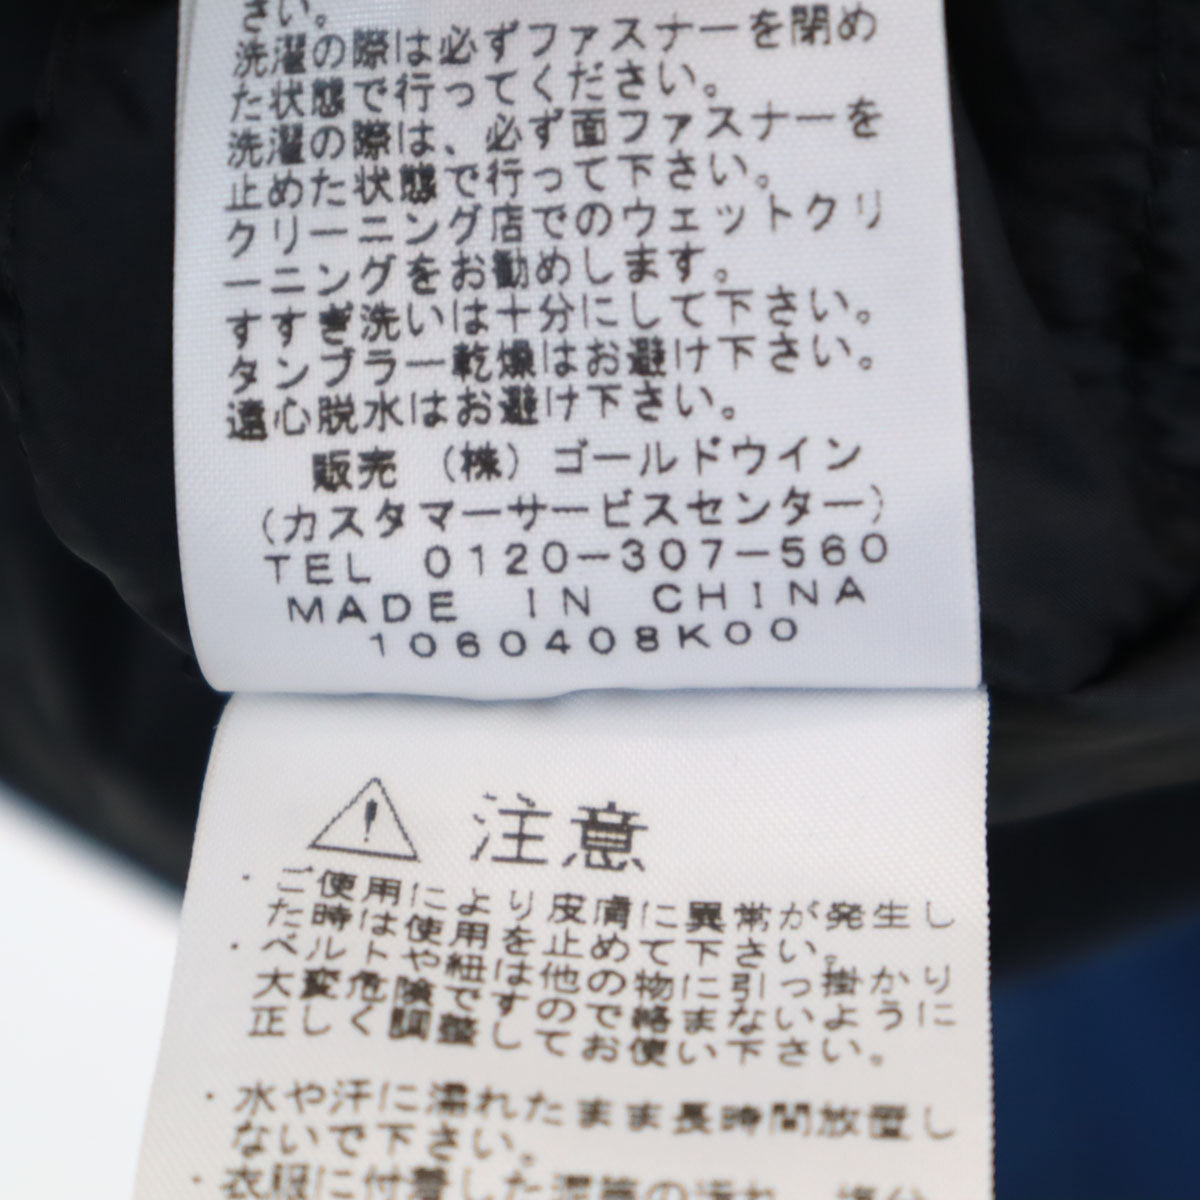 さい。
洗濯の際は必ずファスナーを閉め
た状態で行ってください。
洗濯の際は、必ず面ファスナーを
止めた状態で行って下さい。
クリーニング店でのウェットクリ
ーニングをお勧めします。
すすぎ洗いは十分にして下さい。
タンブラー乾燥はお避け下さい。
遠心脱水はお避け下さい。
販売 (株)ゴールドウイン
(カスタマーサービスセンター)
TEL 0120-307-560
MADE IN CHINA
1060408K00
注意
・ご使用により皮膚に異常が発生し
た時は使用を止めて下さい。
・ベルトや紐は他の物に引っ掛かり
大変危険ですので絡まないように
正しく調整してお使い下さい。
・水や汗に濡れたまま長時間放置し
ないで下さい。
・衣服に付着した泥等の汚れ、塩分